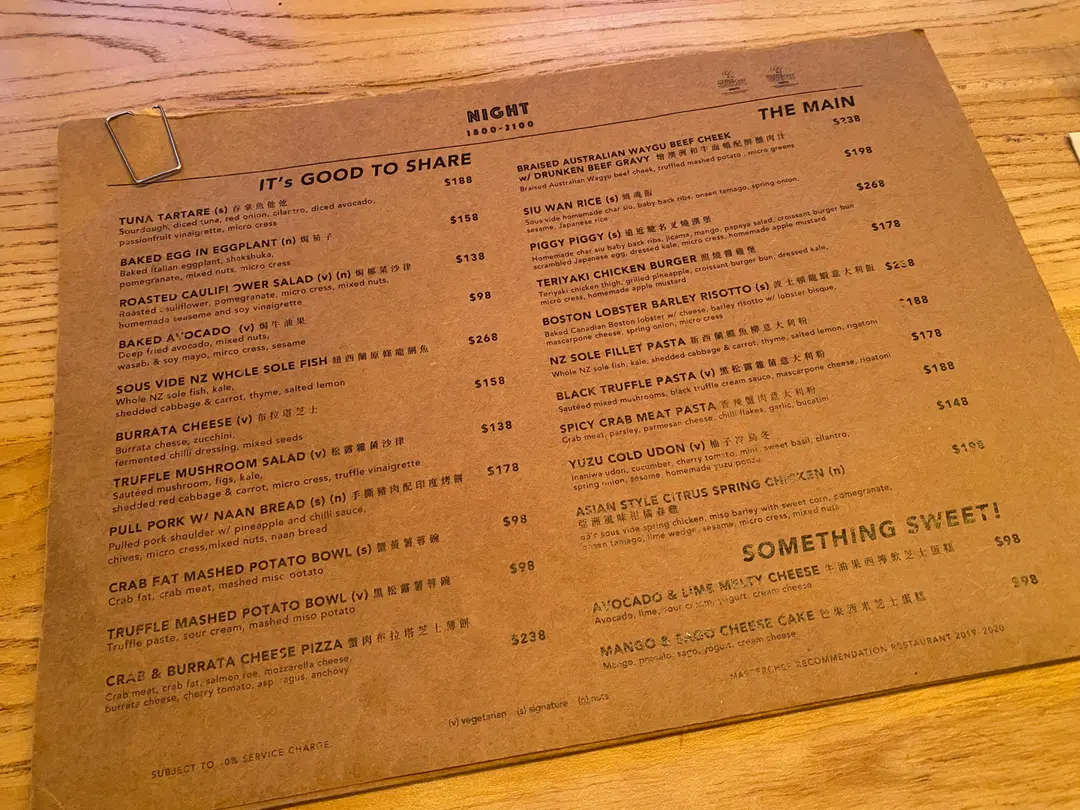 NIGHT
1800-2100
IT's GOOD TO SHARE
TUNA TARTARE (s) 吞拿魚他他 $188
Sourdough, diced tuna, red onion, cilantro, diced avocado,
passionfruit vinaigrette, micro cress
BAKED EGG IN EGGPLANT (n) 焗茄子 $158
Baked Italian eggplant, shakshuka,
pomegranate, mixed nuts, micro cress
ROASTED CAULIFLOWER SALAD (v) (n) 焗椰菜沙律 $138
Roasted cauliflower, pomegranate, micro cress, mixed nuts,
homemada seaseme and soy vinaigrette
BAKED AVOCADO (v) 焗牛油果 $98
Deep fried avocado, mixed nuts,
wasabi & soy mayo, mirco cress, sesame
SOUS VIDE NZ WHOLE SOLE FISH 紐西蘭原條龍脷魚 $268
Whole NZ sole fish, kale,
shedded cabbage & carrot, thyme, salted lemon
BURRATA CHEESE (v) 布拉塔芝士 $158
Burrata chesse, zucchini,
fermented chilli dressing, mixed seeds
TRUFFLE MUSHROOM SALAD (v) 松露雜菌沙律 $138
Sautéed mushroom, figs, kale,
shedded red cabbage & carrot, micro cress, truffle vinaigrette
PULL PORK W/ NAAN BREAD (s) (n) 手撕豬肉配印度烤餅 $178
Pulled pork shoulder w/ pineapple and chilli sauce,
chives, micro cress,mixed nuts, naan bread
CRAB FAT MASHED POTATO BOWL (s) 蟹黃薯蓉碗 $98
Crab fat, crab meat, mashed miso potato
TRUFFLE MASHED POTATO BOWL (v) 黑松露薯蓉碗 $98
Truffle paste, sour cream, mashed miso potato
CRAB & BURRATA CHEESE PIZZA 蟹肉布拉塔芝士薄餅 $238
Crab meat, crab fat, salmon roe, mozzarella cheese,
burrata cheese, cherry tomato, asparagus, anchovy
THE MAIN
BRAISED AUSTRALIAN WAYGU BEEF CHEEK $238
w/ DRUNKEN BEEF GRAVY 燴澳洲和牛面頰配醉醺肉汁
Braised Australian Wagyu beef cheek, truffled mashed potato, micro greens
SIU WAN RICE (s) 銷魂飯 $198
Sous vide homemade char siu, baby back ribs, onsen tamago, spring onion,
sesame, Japanese rice
PIGGY PIGGY (s) 遠近馳名叉燒漢堡 $268
Homemade char siu baby back ribs, jicama, mango, papaya salad, croissant burger bun
scrambled Japanese egg, dressed kale, micro cress, homemade apple mustard
TERIYAKI CHICKEN BURGER 照燒醬雞堡 $178
Teriyaki chicken thigh, grilled pineapple, croissant burger bun, dressed kale,
micro cress, homemade apple mustard
BOSTON LOBSTER BARLEY RISOTTO (s) 波士頓龍蝦意大利飯
Baked Canadian Boston lobster w/ cheese, barley risotto w/ lobster bisque,
mascarpone cheese, spring onion, micro cress
NZ SOLE FILLET PASTA 新西蘭鰈魚柳意大利粉 188
Whole NZ sole fish, kale, shedded cabbage & carrot, thyme, salted lemon, rigatoni
BLACK TRUFFLE PASTA (v) 黑松露雜菌意大利粉 $178
Sautéed mixed mushrooms, black truffle cream sauce, mascarpone cheese, rigatoni
SPICY CRAB MEAT PASTA 香辣蟹肉意大利粉 $188
Crab meat, parsley, parmesan cheese, chilli flakes, garlic, bucatini
YUZU COLD UDON (v) 柚子冷烏冬 $148
Inaniwa udon, cucumber, cherry tomato, mint, sweet basil, cilantro,
spring onion, sesame, homemade yuzu ponzu
ASIAN STYLE CITRUS SPRING CHICKEN (n) $198
亞洲風味柑橘春雞
sous vide spring chicken, miso barley with sweet corn, pomegranate,
onsen tamago, lime wedge, sesame, micro cress, mixed nuts
SOMETHING SWEET!
AVOCADO & LIME MELTY CHEESE 牛油果西檸軟芝士蛋糕 $98
Avocado, lime, sour cream, yogurt, cream cheese
MANGO & SAGO CHEESE CAKE 芒果西米芝士蛋糕 $98
Mango, pomelo, sago, yogurt, cream cheese
MASTERCHEF RECOMMENDATION RESTAURANT 2019-2020
(v) vegetarian (s) signature (n) nuts
SUBJECT TO 10% SERVICE CHARGE